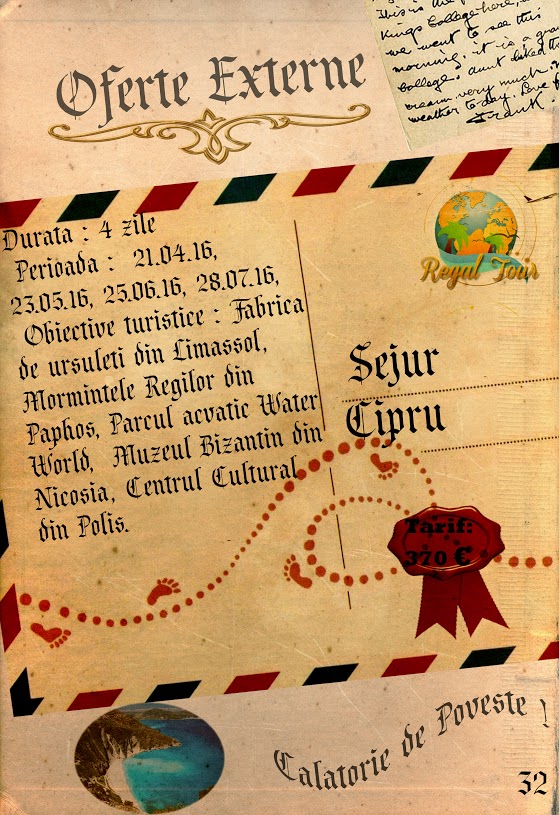 This is the
Kings College here,
we went to see this
morning. it is a gran
College. dont liked th
cream very much.
weather to day. Love f
Frank.
Oferte Externe
Durata : 4 zile
Perioada : 21.04.16,
23.05.16, 25.06.16, 28.07.16,
Obiective turistice : Fabrica
de ursuleti din Limassol,
Mormintele Regilor din
Paphos, Parcul acvatic Water
World, Muzeul Bizantin din
Nicosia, Centrul Cultural
din Polis.
Royal Tour
Sejur
Cipru
Tarif:
370 €
Calatorie de Poveste !
32